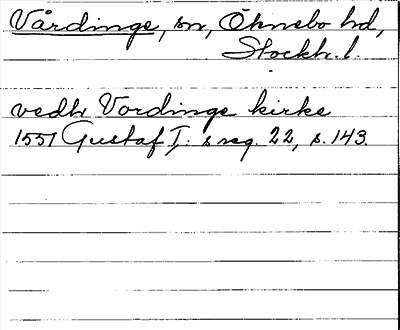 Vårdinge, sn, Öknebo hd,
Stockh. l.
vedh Vordinge kirke
1551 Gustaf I: s reg. 22, s. 143.